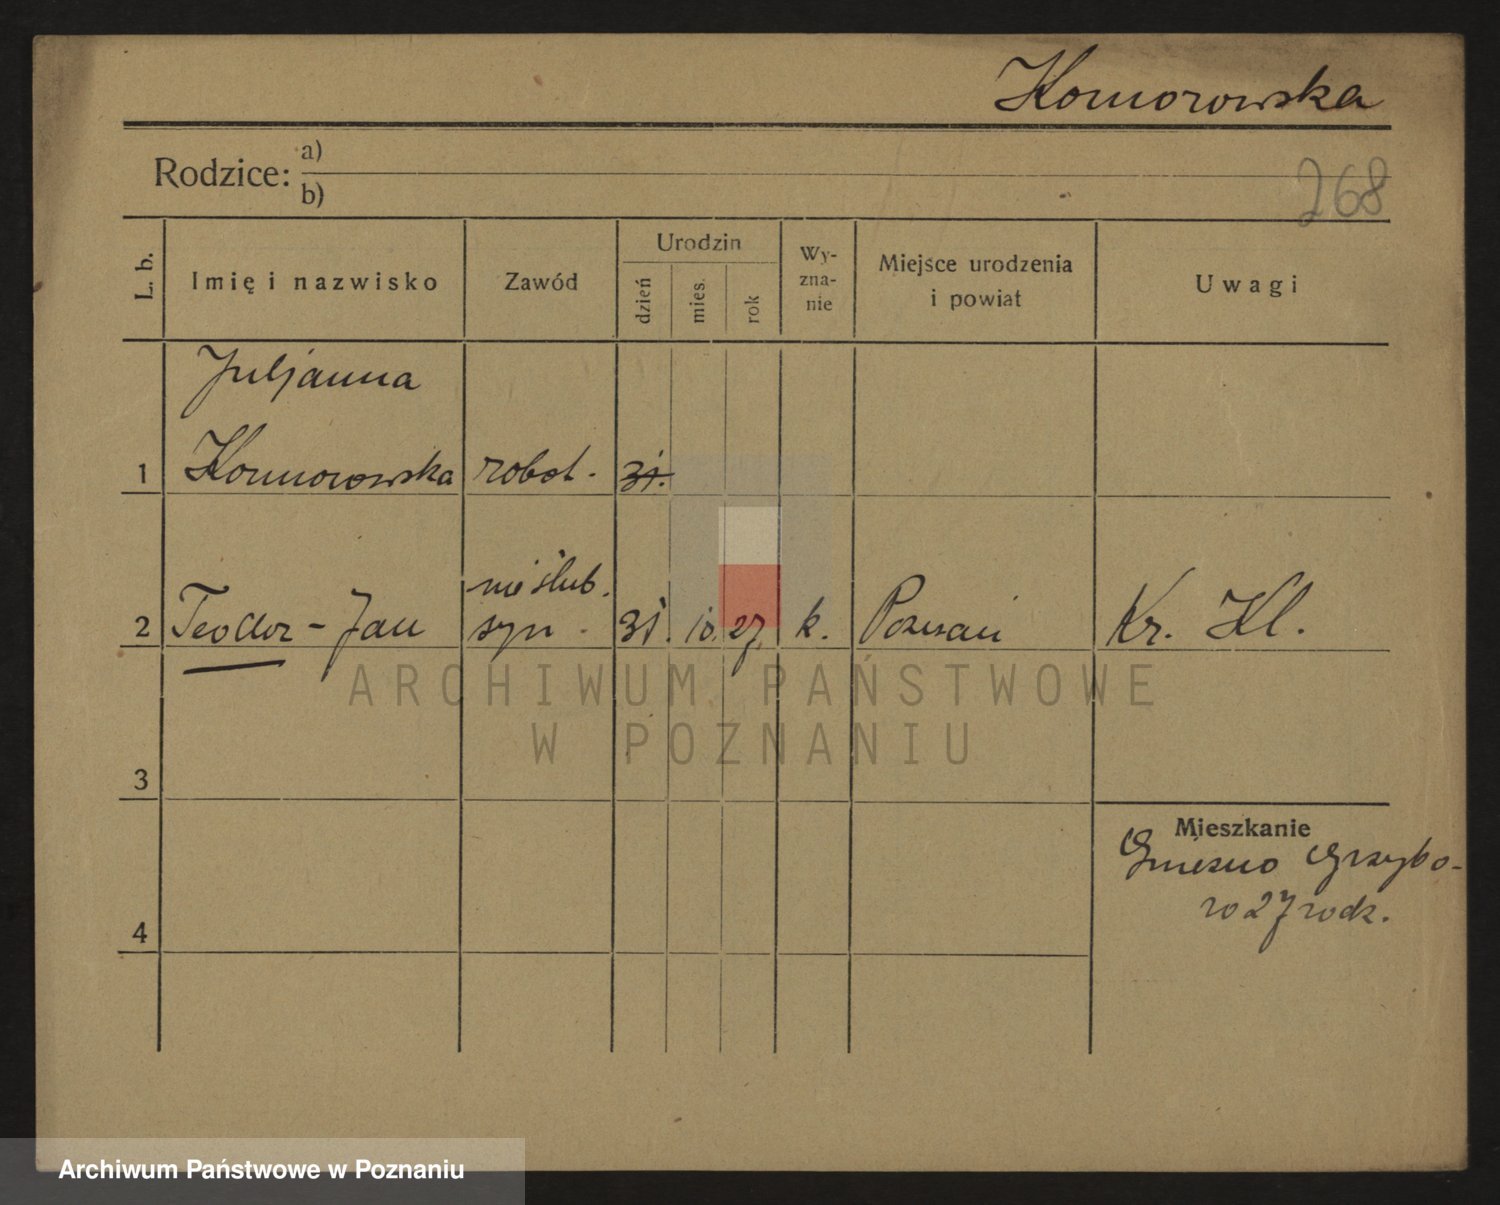 Komorowska
Rodzice: a)
b)
268
L. b.
Imię i nazwisko
Zawód
Urodzin
dzień
mies.
rok
Wy-
zna-
nie
Miejsce urodzenia
i powiat
Uwagi
Juljanna
1 Komorowska robot. 31.
nieślub.
2 Teodor - Jan syn. 31. 10. 27. k. Poznań Kr. Kl.
ARCHIWUM PAŃSTWOWE
W POZNANIU
3
Mieszkanie
Gniezno Grzybo-
wo 27 rodz.
4
Archiwum Państwowe w Poznaniu